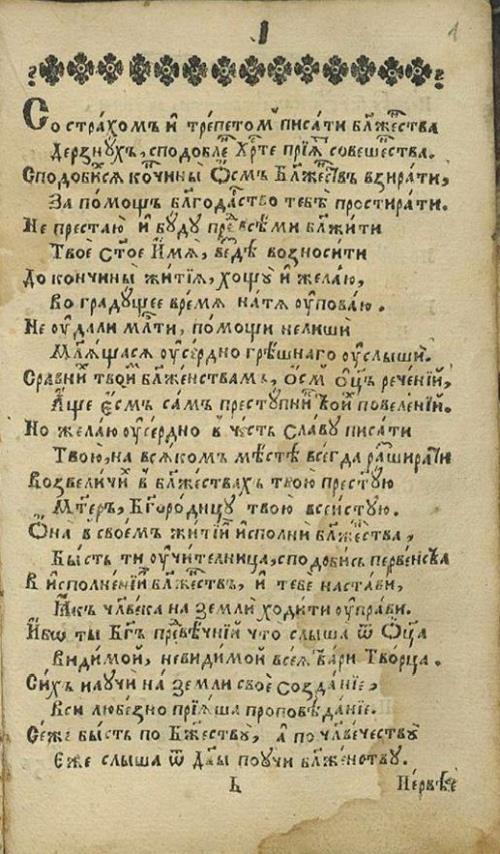 1
1
Со стра́хомъ и҆ тре́петомъ писа́ти бл҃же́ства
Дерзнꙋ́хъ, сподобле́ Хрⷭ҇те прїѧ совеше́ства.
Сподоби́сѧ ко́нчины Ѻ҆́смъ Бл҃же́ствъ взира́ти,
За по́мощъ бл҃года́рство тебѣ̀ прости́рати.
Не преста́ю и҆ бꙋ́дꙋ пре́д всѣ́ми бл҃жи́ти
Твоѐ ст҃ое И҆́мѧ, вездѣ̀ возноси́ти
До кончи́ны жи́тїѧ, хощꙋ̀ и҆ жела́ю,
Во градꙋ́щее вре́мѧ на́тѧ ᲂу҆пова́ю.
Не ᲂу҆далѝ млⷭ҇ти, по́мощи нелишѝ
Мл҃ѧ́щасѧ ᲂу҆се́рдно грѣ́шнаго ᲂу҆слы́ши.
Сравни́ твои́ бл҃же́нствамъ, ѻ҆́смъ рече́нїй,
А҆́ще є҆́смъ са́мъ престꙋ́пни повеле́нїй.
Но жела́ю ᲂу҆се́рдно в̾ че́сть сла́вꙋ писа́ти
Твою̀, на всѧ́комъ мѣ́стѣ всегда̀ рашира́ти
Возвели́чи в̾ бл҃же́ствахъ твою̀ престꙋ́ю
Мт҃еръ, Бг҃оро́дицꙋ твою̀ всеи́стꙋю.
Ѻ҆на̀ в̾ свое́мъ жи́тїи и҆спо́лни бл҃же́ства,
Бы́сть ти ᲂу҆чи́телница, сподоби́сь перве́нсва
В̾ и҆сполне́нїи бл҃же́ствъ, и҆ тебе наста́ви,
Ꙗ҆́къ чл҃вѣ́ка на землѝ ходи́ти ᲂу҆пра́ви.
И҆́бѡ ты̀ Бг҃ъ превѣ́чнїй что слы́ша ѿ Ѻ҆ц҃а
Види́мой, невиди́мой всеѧ̀ тва́ри Тво́рца.
Си́хъ наꙋчи на́ землѝ своѐ созда́нїе,
Вси любе́зно прїѧ́ша проповѣ́данїе.
Се́же бы́сть по Бж҃ествꙋ̀, а҆ по чл҃вѣ́чествꙋ̀
Є҆́же слы́ша ѿ Дв҃ы поꙋчѝ бл҃же́нствꙋ.
Пе́рвѣе